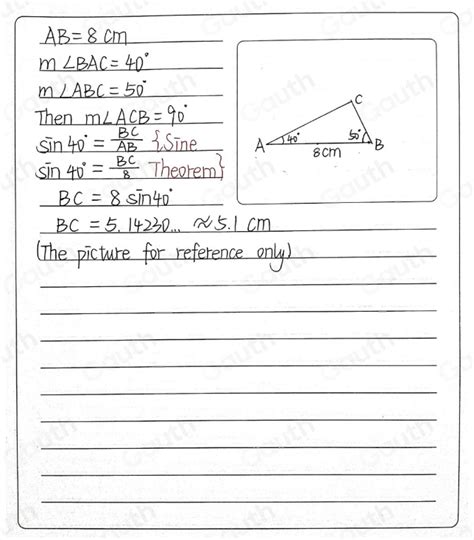 AB = 8 cm
m∠BAC = 40°
m∠ABC = 50°
Then m∠ACB = 90°
sin 40° = BC/AB {Sine
sin 40° = BC/8 Theorem}
BC = 8 sin40°
BC = 5.14230... ≈ 5.1 cm
(The picture for reference only)
C
A 40° 50° B
8cm
Gauth